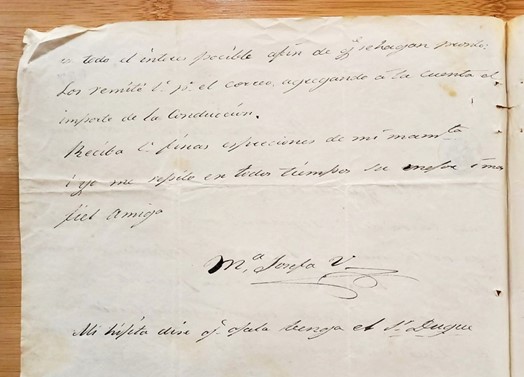 todo el interes posible afin de q.e se hagan pronto.
Los remite V. p.r el correo, agregando á la cuenta el
importe de la conducción.
Reciba V. finas espreciones de mi mamita
i yo me repito en todos tiempos su mejor i mas
fiel amiga
M.a Josefa V.
Mi hijita dice q.e ojala benga el S.r Duque